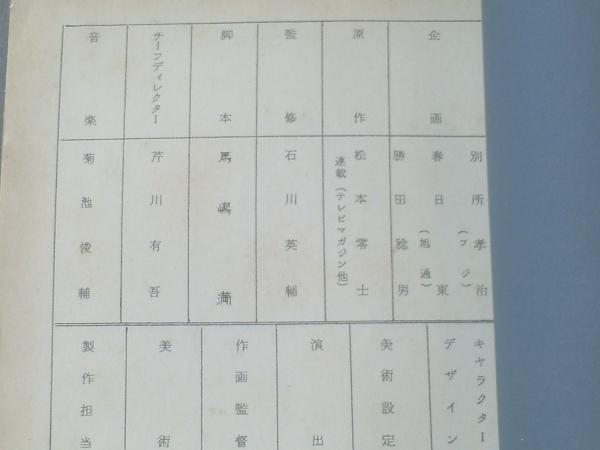 企画
別所孝治
(フジ)
春日東
(旭通)
勝田稔男
原作
松本零士
連載(テレビマガジン他)
監修
石川英輔
脚本
馬嶋満
チーフディレクター
芹川有吾
音楽
菊池俊輔
キャラクター
デザイン
美術設定
演出
作画監督
美術
製作担当